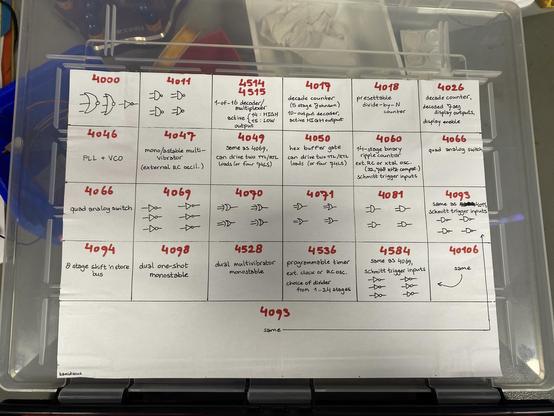 4000
4011
4514
4515
1-of-16 decoder/
multiplexer
active { 14: HIGH
15: LOW
output
4017
decade counter
(5 stage Johnson)
10-output decoder,
active HIGH output
4018
presettable
divide-by-N
counter
4026
decade counter,
decoded 7seg
display outputs,
display enable
4046
PLL + VCO
4047
mono/astable multi-
vibrator
(external RC oscil.)
4049
same as 4069,
can drive two TTL/RTL
loads (or four 74LS)
4050
hex buffer gate
can drive two TTL/RTL
loads (or four 74LS)
4060
14-stage binary
ripple counter
ext. RC or xtal osc.
schmitt trigger inputs
4066
quad analog switch
4066
quad analog switch
4069
4070
4071
4081
4093
same as 4011,
schmitt trigger inputs
4094
8 stage shift 'n store
bus
4098
dual one-shot
monostable
4528
dual multivibrator
monostable
4536
programmable timer
ext. clock or RC osc.
choice of divider
from 1-24 stages
4584
same as 4069,
schmitt trigger inputs
40106
same
4093
same